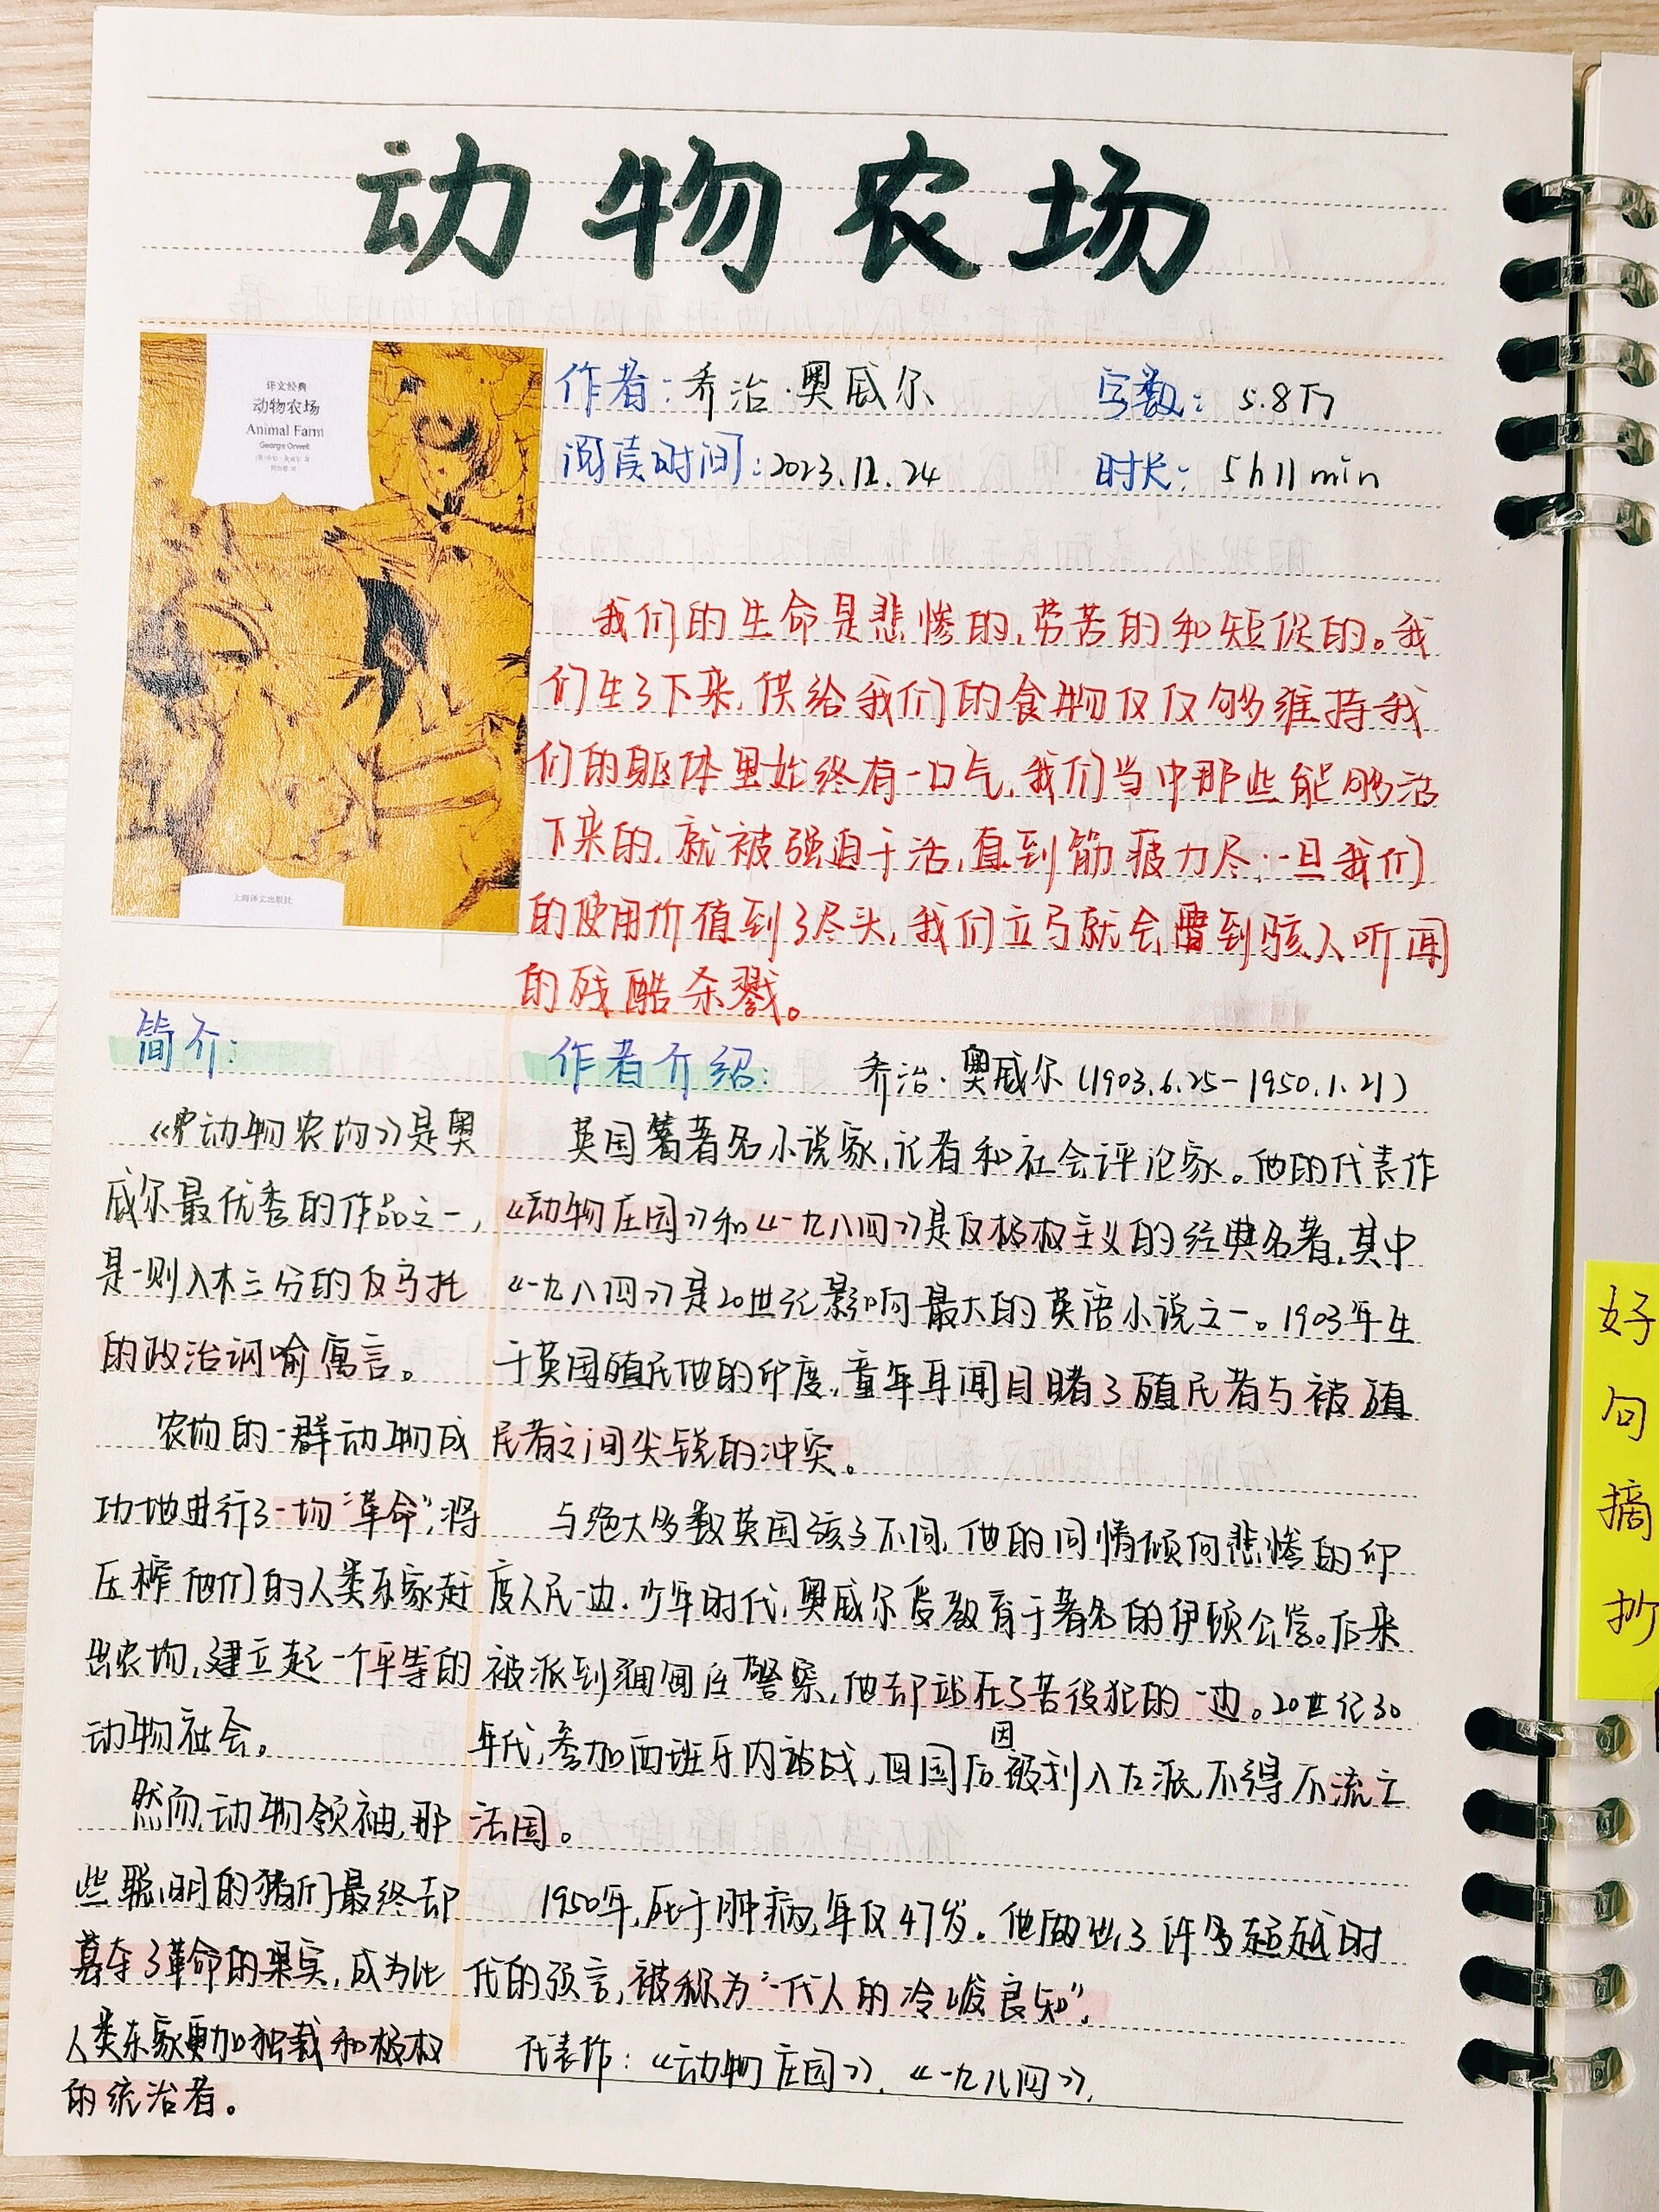 动物农场
译文经典
动物农场
Animal Farm
George Orwell
上海译文出版社
作者:乔治·奥威尔
字数:5.8万
阅读时间:2023.12.24
时长:5h11min
我们的生命是悲惨的,劳苦的和短促的。我
们生了下来,供给我们的食物仅仅够维持我
们的躯体里始终有一口气,我们当中那些能够活
下来的,就被强迫干活,直到筋疲力尽;一旦我们
的使用价值到了尽头,我们立马就会遭到骇人听闻
的残酷杀戮。
简介:
《动物农场》是奥
威尔最优秀的作品之一,
是一则入木三分的反乌托
的政治讽喻寓言。
农场的一群动物成
功地进行了一场“革命”,将
压榨他们的人类东家赶
出农场,建立起一个平等的
动物社会。
然而,动物领袖,那
些聪明的猪们最终却
篡夺了革命的果实,成为比
人类东家更加独裁和极权
的统治者。
作者介绍:
乔治·奥威尔(1903.6.25-1950.1.21)
英国著名小说家,记者和社会评论家。他的代表作
《动物庄园》和《一九八四》是反极权主义的经典名著,其中
《一九八四》是20世纪影响最大的英语小说之一。1903年生
于英国殖民地的印度,童年耳闻目睹了殖民者与被殖
民者之间尖锐的冲突。
与绝大多数英国孩子不同,他的同情倾向悲惨的印
度人民一边.少年时代,奥威尔受教育于著名的伊顿公学。后来
被派到缅甸任警察,他却站在了苦役犯的一边。20世纪30
年代,参加西班牙内战,回国后因被划入左派,不得不流亡
法国。
1950年,死于肺病,年仅47岁。他做出了许多超越时
代的预言,被称为“一代人的冷峻良知”.
代表作:《动物庄园》,《一九八四》,
好句摘抄